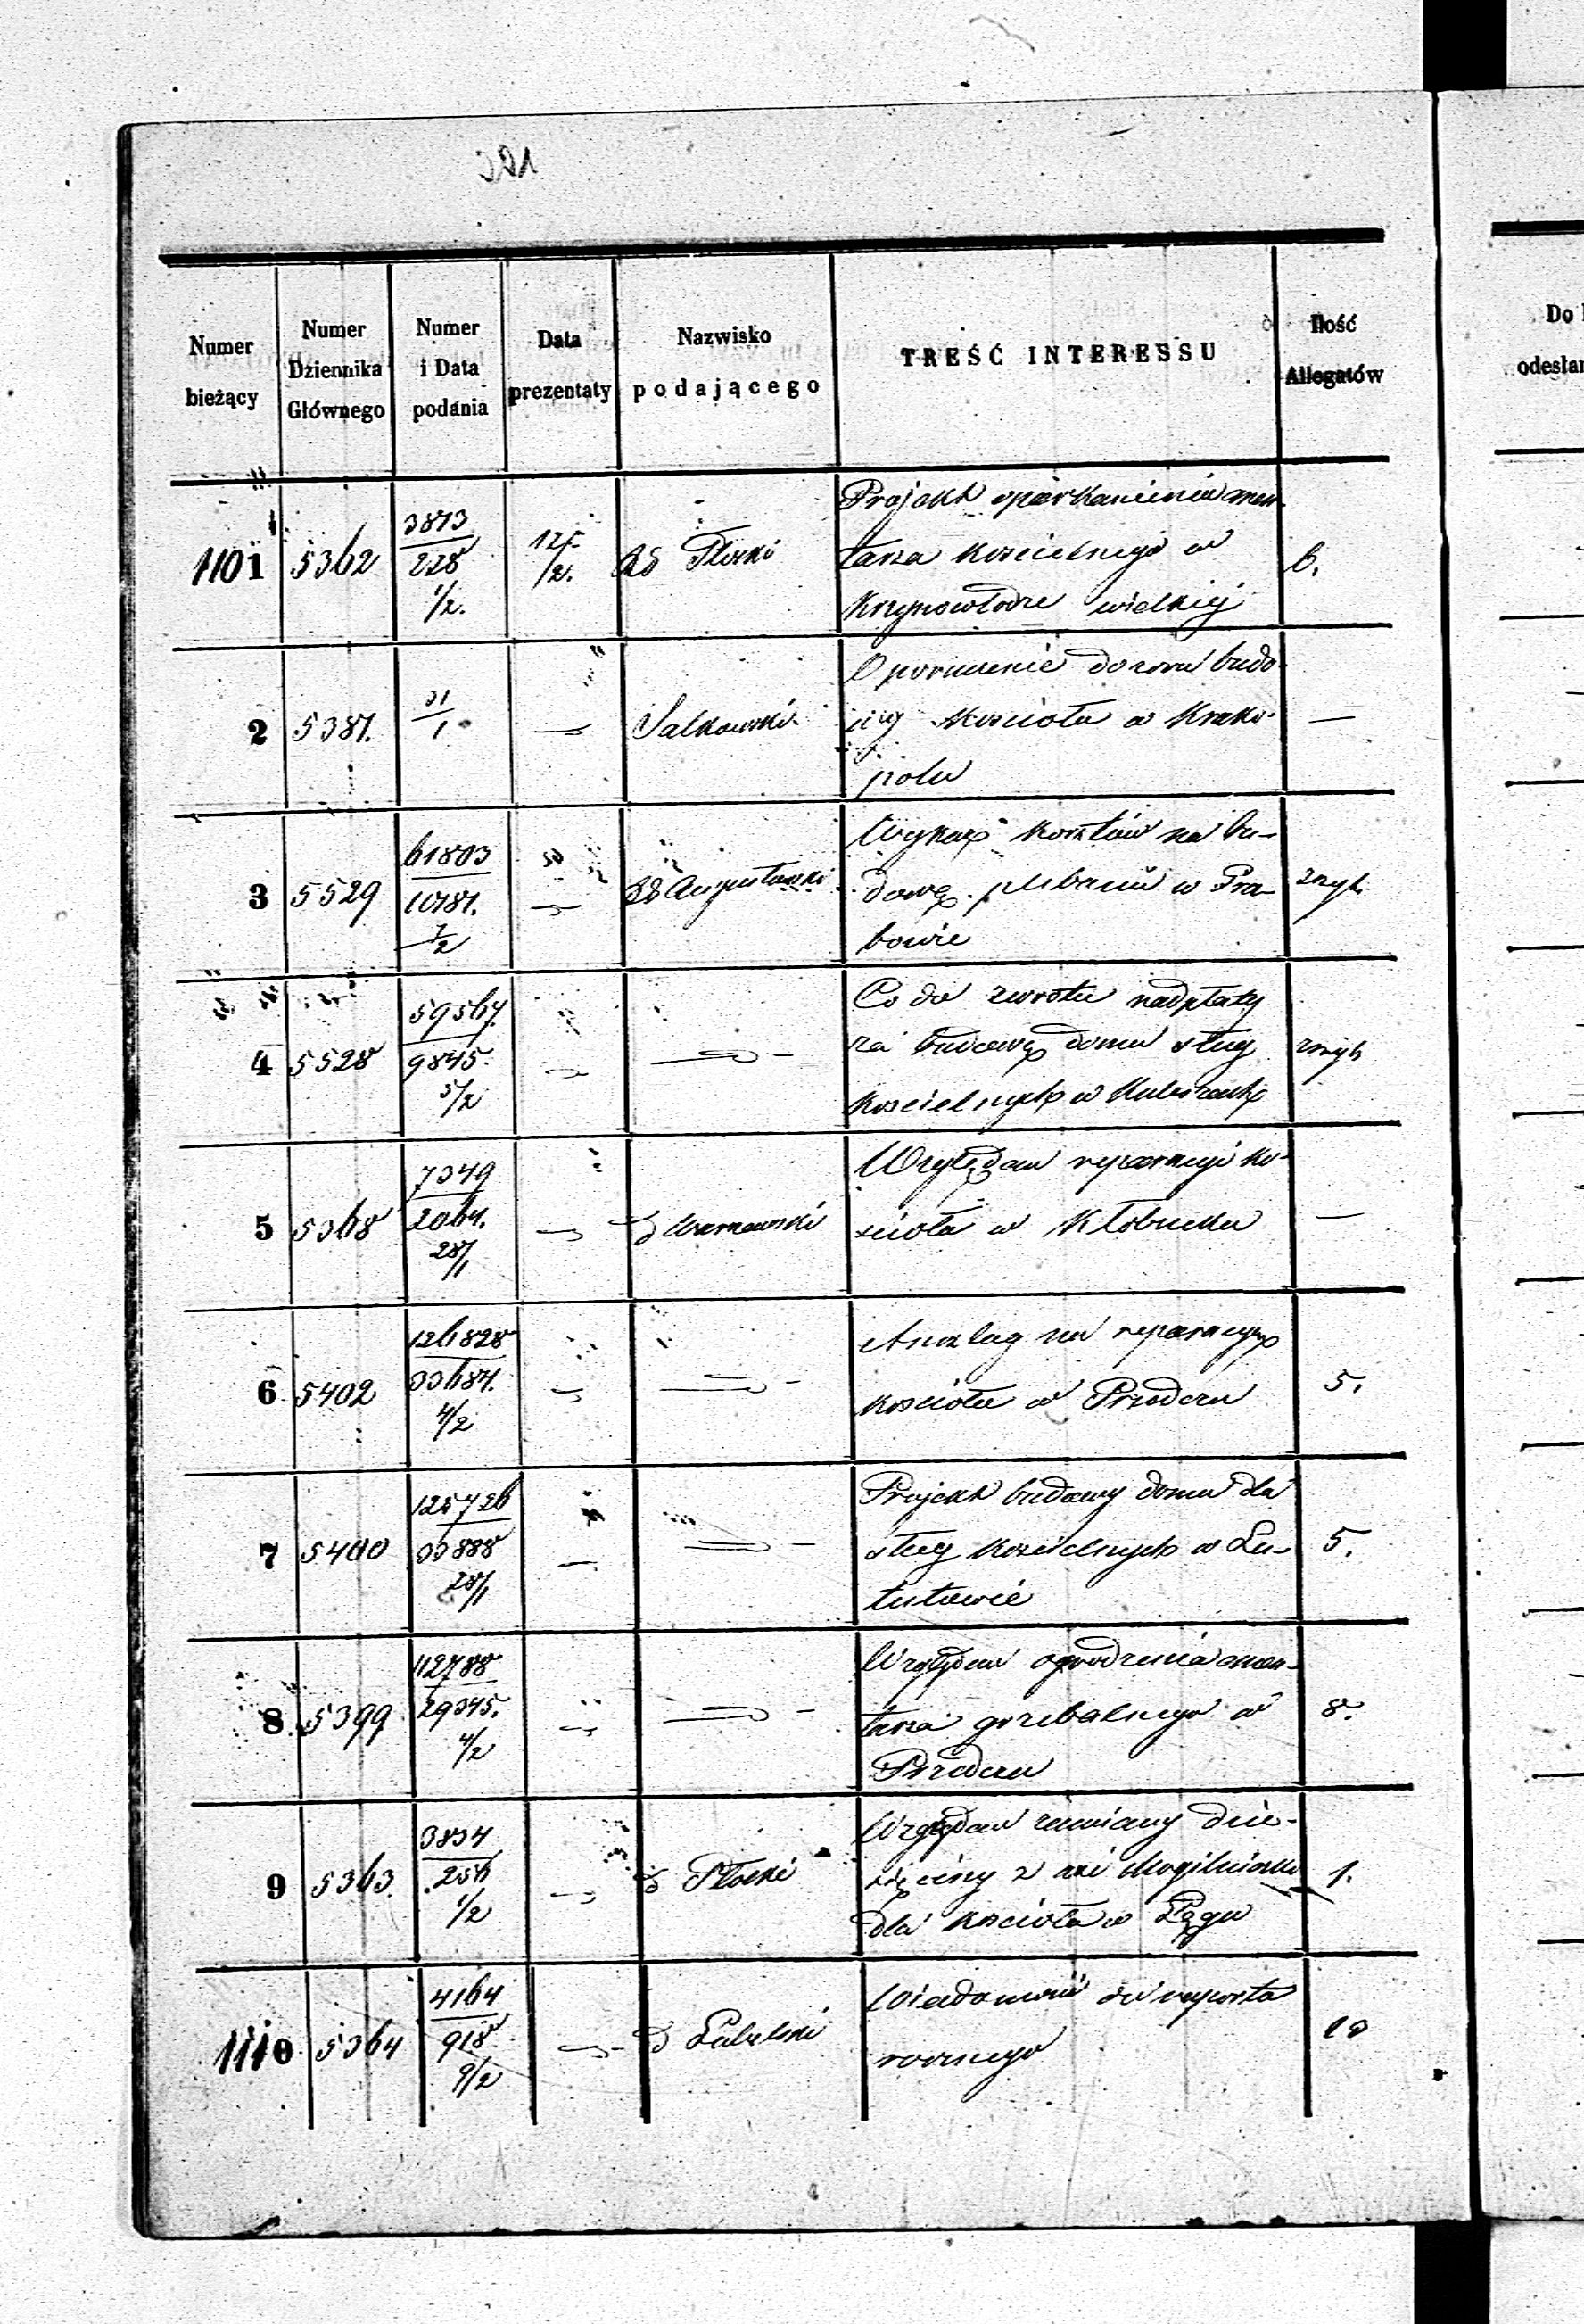 221
Numer bieżący
Numer Dziennika Głównego
Numer i Data podania
Data prezentaty
Nazwisko podającego
TREŚĆ INTERESSU
Ilość Allegatów
Do
odesłan
1101 5362 3873/228 1/2. 12/2. RG Płocki Projekt oparkanienia cmen-
tarza kościelnego w
Krzynowłodze wielkiej 6.
2 5387. 31/1 — Salkowski O poruczenie dozoru budo-
wy Kościoła w Krako-
polu —
3 5529 61803/10787. 7/2 — RG Augustowski Wykaz kosztów na bu-
dowę plebanii w Gra-
bowie zszyt
4 5528 59567/9845. 5/2 — — Co do zwrotu nadpłaty
za budowę domu sług
kościelnych w Kuleszach zszyt
5 5368 7349/2064. 28/1 — d Warszawski Względem reparacyi ko-
ścioła w Kłobucku —
6 5402 126828/33684. 4/2 — — Anszlag na reparacyę
kościoła w Przedczu 5.
7 5400 125726/33888 28/1 — — Projekt budowy domu dla
sług kościelnych w Lu-
tutowie 5.
8 5399 112788/29345. 4/2 — — Względem ogrodzenia cmen-
tarza grzebalnego w
Przedczu 8.
9 5363. 3834/256 1/2 — d Płocki Względem zamiany dzie-
sięciny z wsi Mogilniczka
dla kościoła w Łęgu 1.
1110 5364 4164/918. 9/2 — d Lubelski Wiadomość do raportu
rocznego